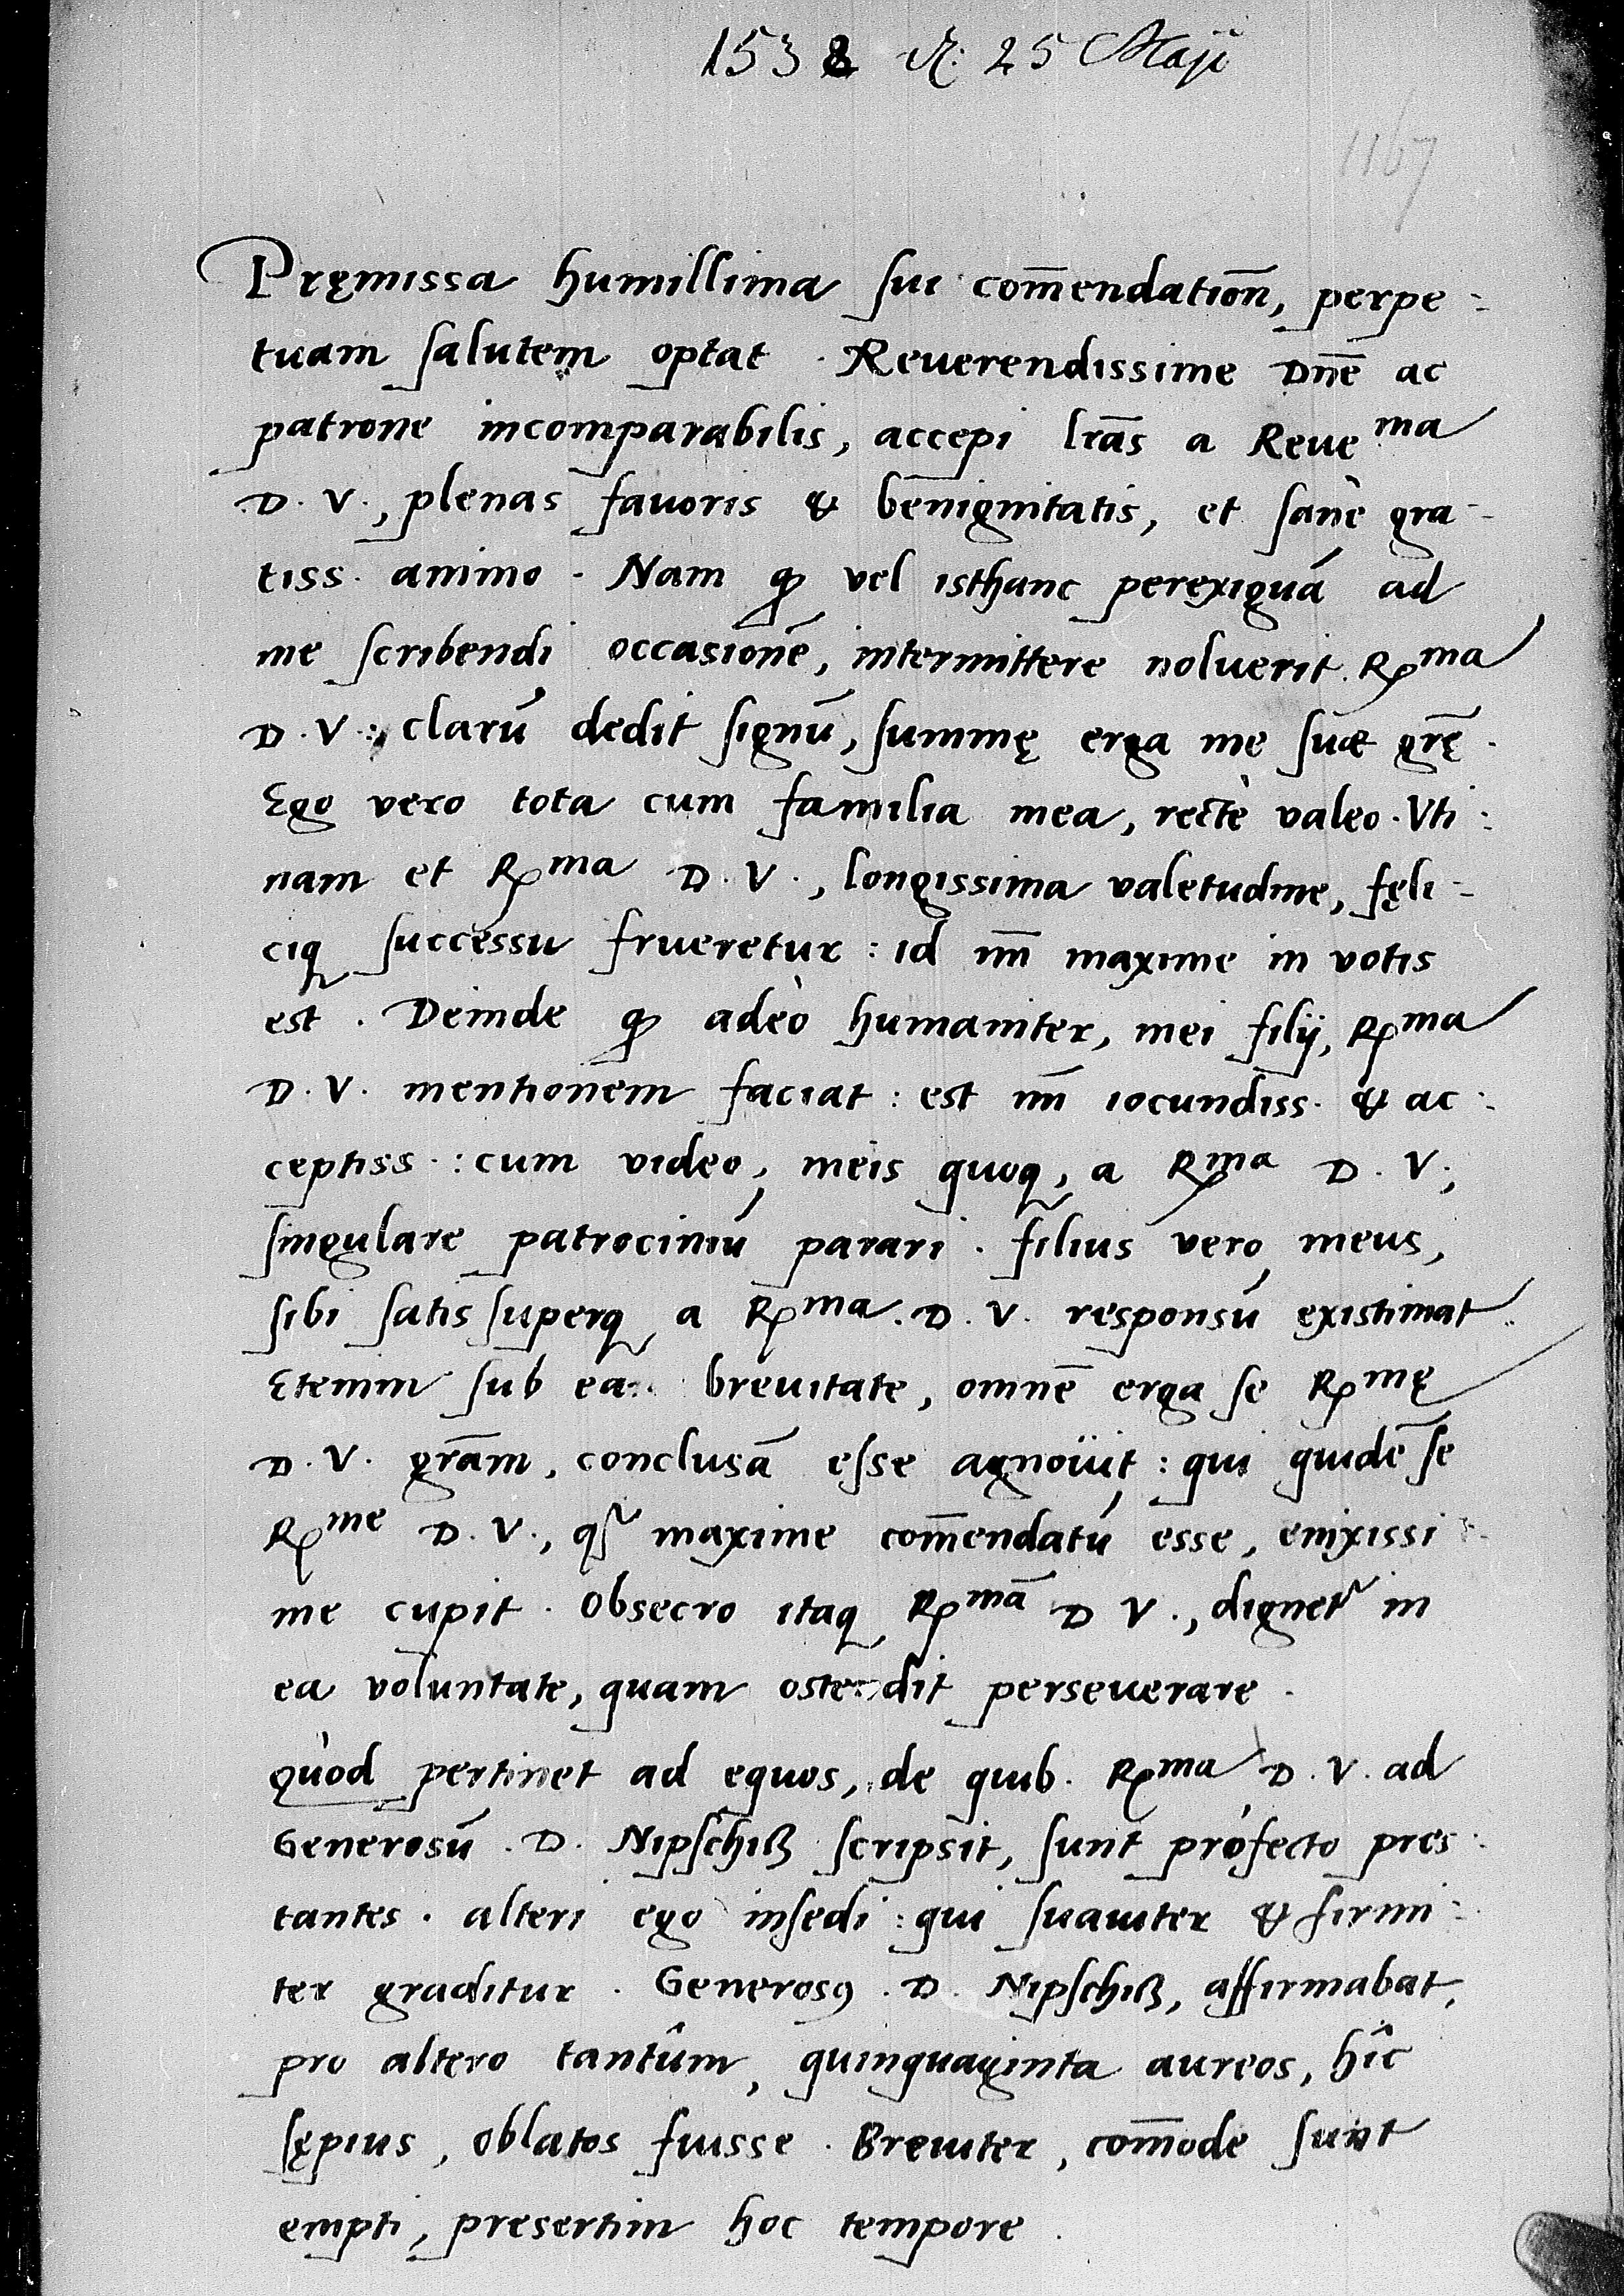 1538 d. 25 Maji
1167
Pręmissa humillima sui com̄endation̄, perpe:
tuam salutem optat. Reuerendissime Dn̄e ac
patrone incomparabilis, accepi lr̄as a Reueᵐᵃ
D. V., plenas fauoris & benignitatis, et sanè gra-
tiss. animo. Nam ꝙ vel isthanc perexiguā ad
me scribendi occasionē, intermittere noluerit. Rᵐᵃ
D. V., clarū dedit signū, summę erga me suæ gr̄ę.
Ego vero tota cum familia mea, rectè valeo. Vti:
nam et Rᵐᵃ D. V., longissima valetudine, fęli-
ciqꝫ successu frueretur: id m̄ maxime in votis
est. Deinde ꝙ adeò humaniter, mei filij, Rᵐᵃ
D. V. mentionem faciat: est m̄ iocundiss. & ac:
ceptiss.: cum video, meis quoqꝫ, a Rᵐᵃ D. V.,
singulare patrociniū parari. filius vero meus,
sibi satis superqꝫ a Rᵐᵃ. D. V. responsū existimat.
Etenim sub ea brevitate, omnē erga se Rᵐę
D. V. gr̄am, conclusā esse agnouit: qui quidē se
Rᵐᵉ D. V., qꝫ maxime com̄endatū esse, enixissi:
me cupit. Obsecro itaqꝫ Rᵐā D V., dignetʳ in
ea voluntate, quam ostendit perseuerare.
quòd pertinet ad equos, de quib. Rᵐᵃ D. V. ad
Generosū. D. Nipschiß scripsit, sunt profecto pres:
tantes. alteri ego insedi: qui suauiter & firmi:
ter graditur. Generosꝰ. D. Nipschiß, affirmabat,
pro altero tantûm, quinquaginta aureos, hîc
sępius, oblatos fuisse. Breuiter, com̄ode sunt
empti, presertim hoc tempore.